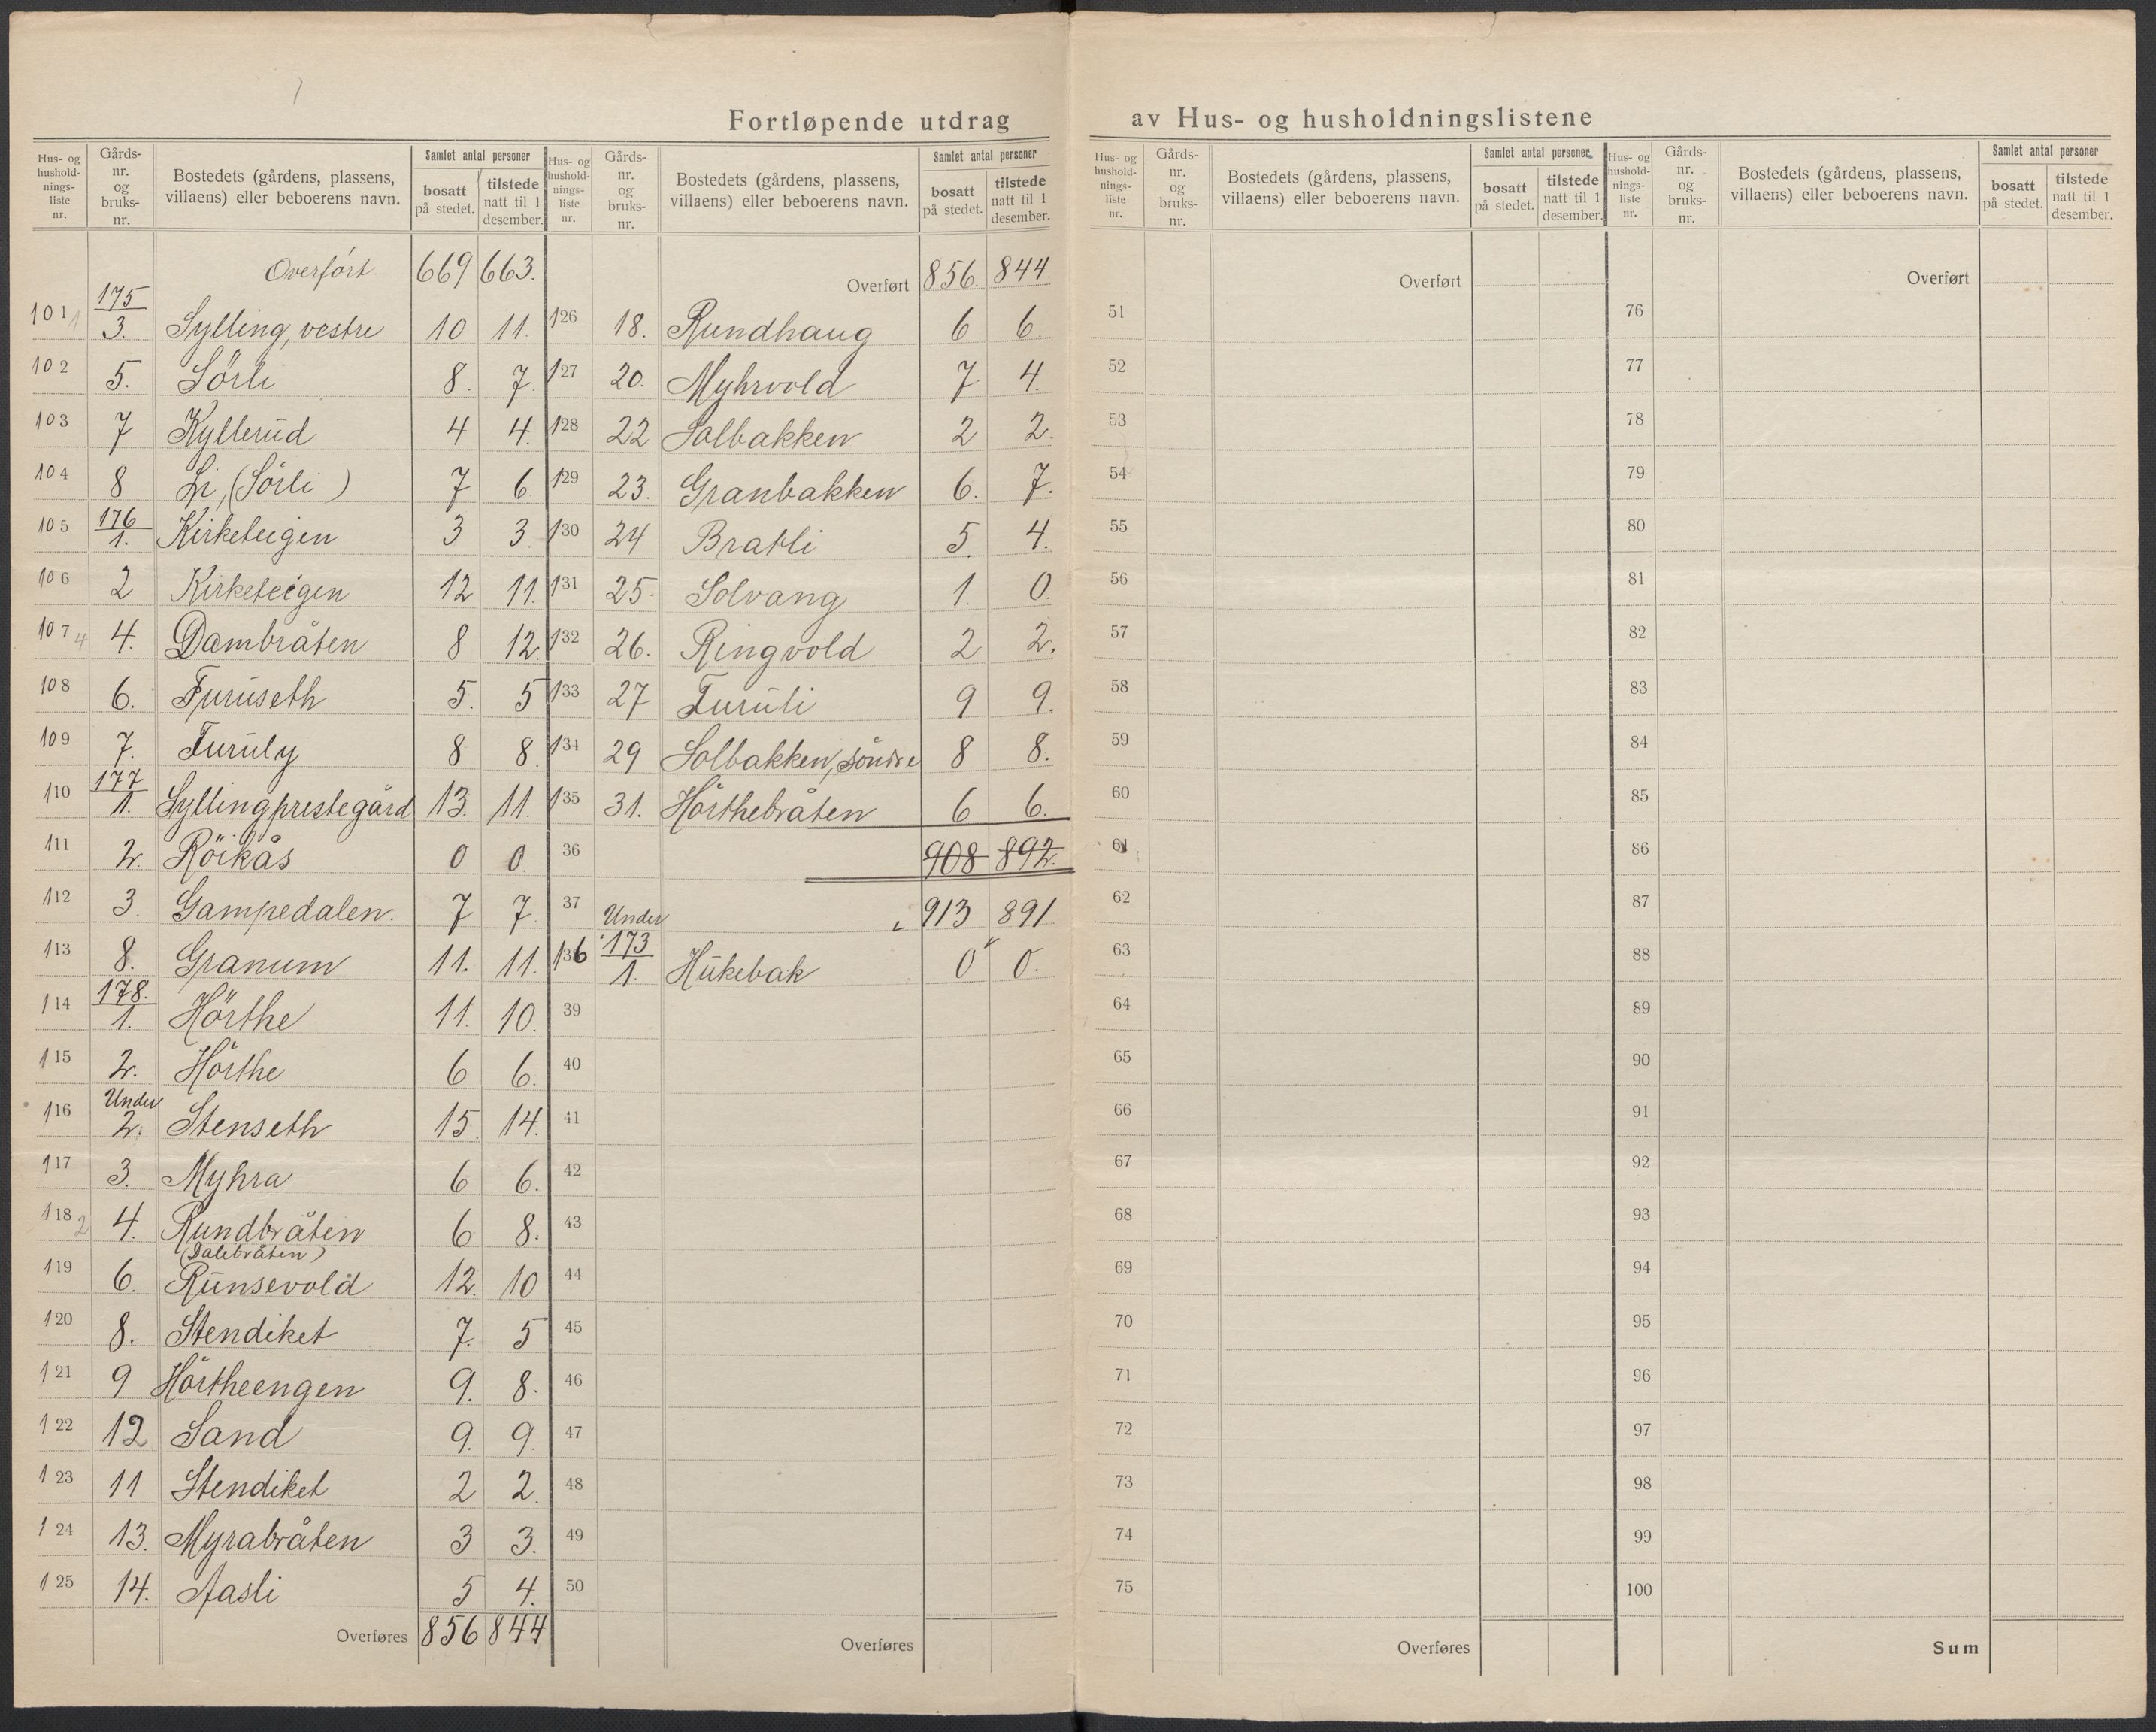 Fortløpende utdrag av Hus- og husholdningslistene
Hus- og hushold- nings- liste nr. | Gårds- nr. og bruks- nr. | Bostedets (gårdens, plassens, villaens) eller beboerens navn. | Samlet antal personer | bosatt på stedet. | tilstede natt til 1 desember.
Overført 669 663.
101 175/3. Sylling, vestre 10 11.
102 5. Sörli 8. 7.
103 7 Kyllerud 4 4.
104 8 Li, (Sörli) 7 6
105 176/1. Kirketeigen 3 3.
106 2 Kirketeigen 12 11.
107 4 4. Dambråten 8 12.
108 6. Furuseth 5. 5
109 7. Furuly 8 8.
110 177/1. Syllingprestegård 13. 11.
111 2. Röikås 0 0.
112 3. Gampedalen. 7 7.
113 8. Granum 11. 11.
114 178./1. Hörthe 11. 10.
115 2. Hörthe 6 6.
116 Under 2. Stenseth 15. 14.
117 3. Myhra 6 6.
118 2 4. Rundbråten 6 8.
(Dalebråten)
119 6. Runsevold 12. 10
120 8. Stendiket 7. 5
121 9 Hörtheengen 9. 8.
122 12 Sand 9. 9.
123 11 Stendiket 2 2.
124 13. Myrabråten 3 3.
125 14. Aasli 5 4.
Overføres 856 844
Hus- og hushold- nings- liste nr. | Gårds- nr. og bruks- nr. | Bostedets (gårdens, plassens, villaens) eller beboerens navn. | Samlet antal personer | bosatt på stedet. | tilstede natt til 1 desember.
Overført 856. 844.
126 18. Rundhaug 6 6.
127 20. Myhrvold 7 4.
128 22 Solbakken 2 2.
129 23. Granbakken 6. 7.
130 24 Bratli 5. 4.
131 25. Solvang 1. 0.
132 26. Ringvold 2 2.
133 27 Furuli 9 9.
134 29 Solbakken, söndre 8 8.
135 31. Hörthebråten 6 6.
36 908 892.
37 913 891
136 Under 173/1. Hukebak 0 0.
39
40
41
42
43
44
45
46
47
48
49
50
Overføres
Hus- og hushold- nings- liste nr. | Gårds- nr. og bruks- nr. | Bostedets (gårdens, plassens, villaens) eller beboerens navn. | Samlet antal personer | bosatt på stedet. | tilstede natt til 1 desember.
Overført
51
52
53
54
55
56
57
58
59
60
61
62
63
64
65
66
67
68
69
70
71
72
73
74
75
Overføres
Hus- og hushold- nings- liste nr. | Gårds- nr. og bruks- nr. | Bostedets (gårdens, plassens, villaens) eller beboerens navn. | Samlet antal personer | bosatt på stedet. | tilstede natt til 1 desember.
Overført
76
77
78
79
80
81
82
83
84
85
86
87
88
89
90
91
92
93
94
95
96
97
98
99
100
Sum